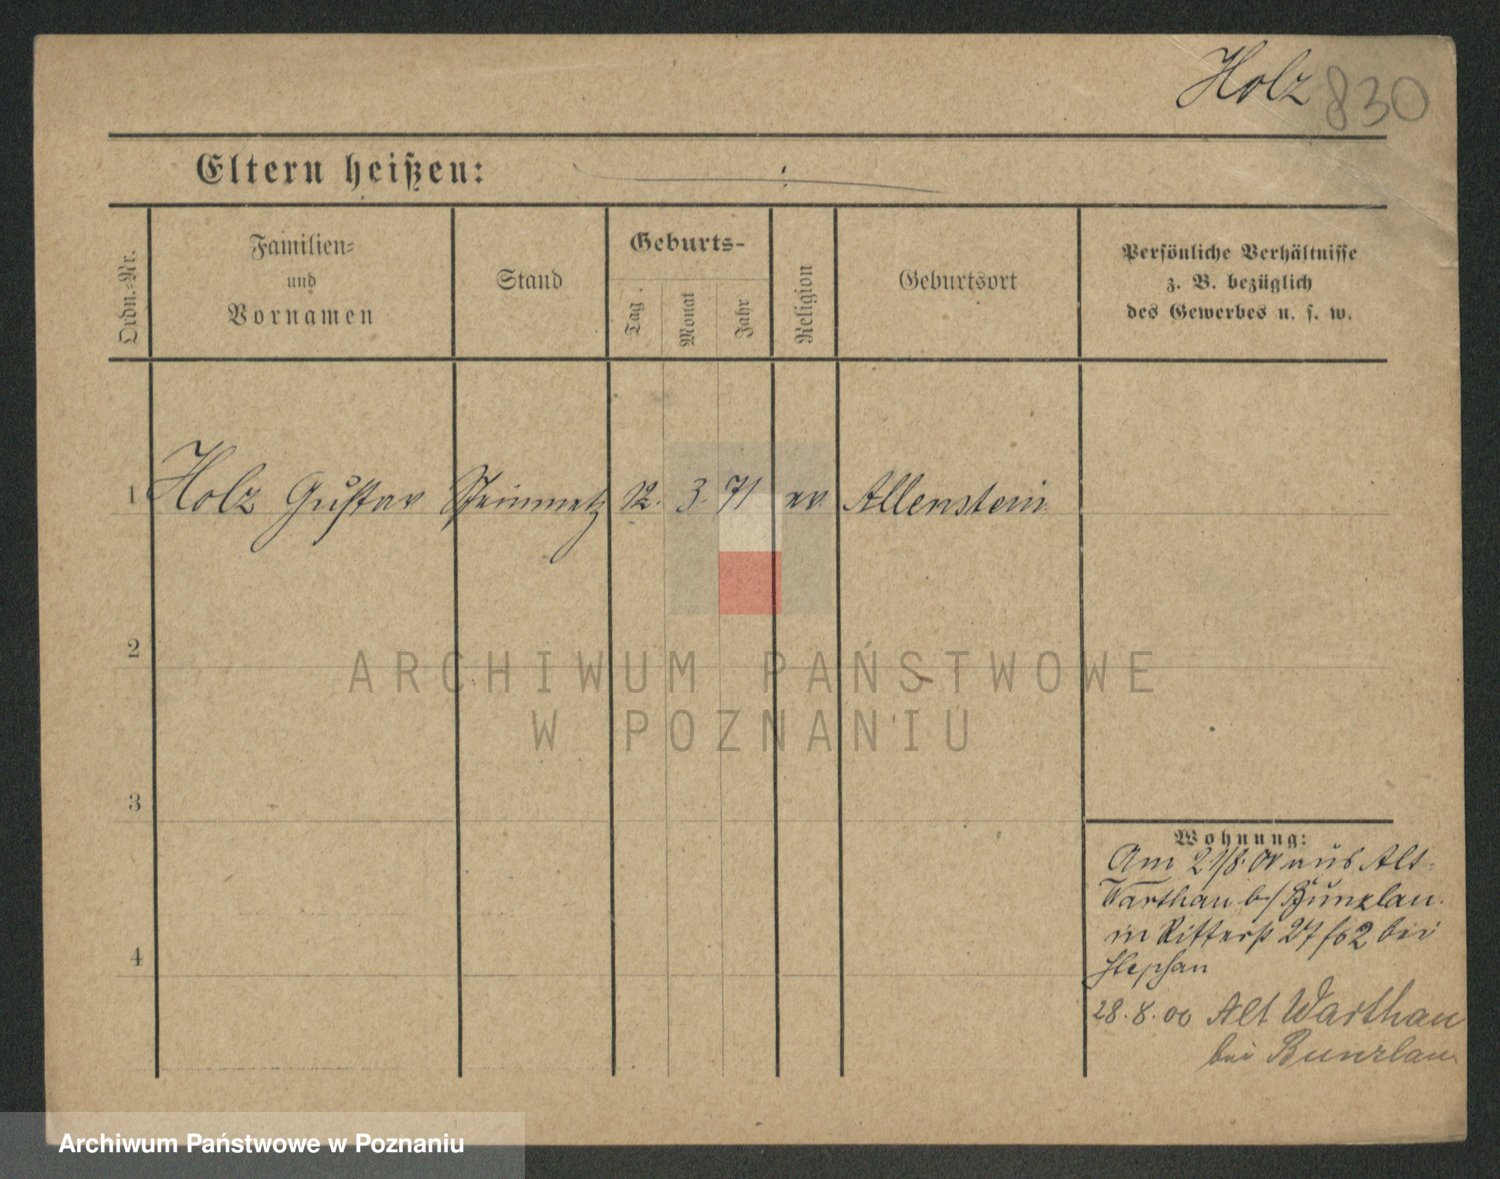 Holz 830
Eltern heißen:
Ordn.-Nr.
Familien-
und
Vornamen
Stand
Geburts-
Tag.
Monat
Jahr
Religion
Geburtsort
Persönliche Verhältnisse
z. B. bezüglich
des Gewerbes u. s. w.
1 Holz Gustav Steinmetz 12. 3. 71 ev Allenstein
2
ARCHIWUM PAŃSTWOWE
W POZNANIU
3
Wohnung:
Am 21/8. 00 aus Alt-
Warthau b/ Bunzlau
in Ritterst 27 bei
4
28. 8. 00 Alt Warthau
bei Bunzlau
Archiwum Państwowe w Poznaniu